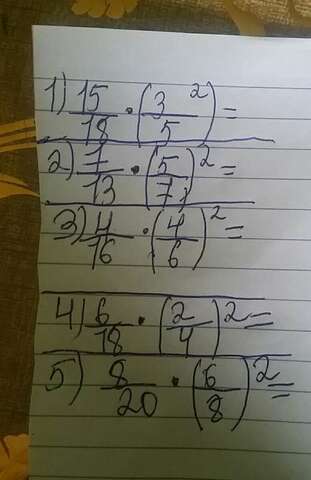 1) 15/18 · (3²/5) =
2) 7/13 · (5/7)² =
3) 4/16 · (4/6)² =
4) 6/18 · (2/4)² =
5) 8/20 · (6/8)² =